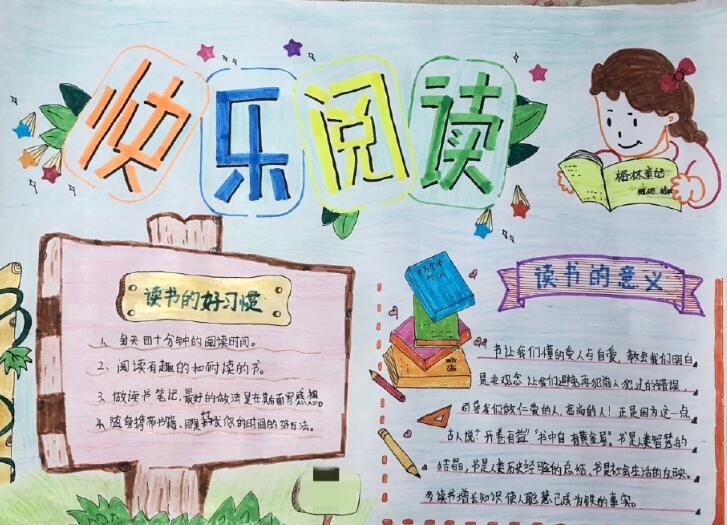 快乐阅读
格林童话
读书的好习惯
1、每天四十分钟的阅读时间。
2、阅读有趣的和耐读的书。
3、做读书笔记,最好的做法是在其后面写感想
4、随身携带书籍,
你的时间的好方法。
读书的意义
书让我们懂的爱人与自爱,教会我们明白
是非观念,让我们避免再犯前人犯过的错误,
可使我们做仁爱的人,高尚的人!正是因为这一点
古人说“开卷有益”“书中自有黄金屋”。书是人类智慧的
结晶,书是人类历史经验的总结,书是社会生活的反映。
多读书增长知识使人聪慧已成为铁的事实。